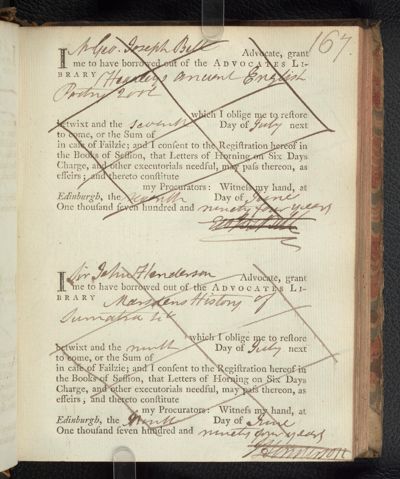 167.
I Mr Geo. Joseph Bell Advocate, grant
me to have borrowed out of the ADVOCATES LI-
BRARY Ancient English
Poetry 2 vol
which I oblige me to reſtore
betwixt and the seventh Day of July next
to come, or the Sum of
in caſe of Failzie; and I conſent to the Regiſtration hereof in
the Books of Seſſion, that Letters of Horning on Six Days
Charge, and other executorials needful, may paſs thereon, as
effeirs; and thereto conſtitute
my Procurators: Witneſs my hand, at
Edinburgh, the seventh Day of June
One thouſand ſeven hundred and ninety four years
Geo Jos Bell
I Sir John Henderson Advocate, grant
me to have borrowed out of the ADVOCATES LI-
BRARY Marsdens History of
Sumatra
which I oblige me to reſtore
betwixt and the ninth Day of July next
to come, or the Sum of
in caſe of Failzie; and I conſent to the Regiſtration hereof in
the Books of Seſſion, that Letters of Horning on Six Days
Charge, and other executorials needful, may paſs thereon, as
effeirs; and thereto conſtitute
my Procurators: Witneſs my hand, at
Edinburgh, the Ninth Day of June
One thouſand ſeven hundred and ninety four years
J Henderson